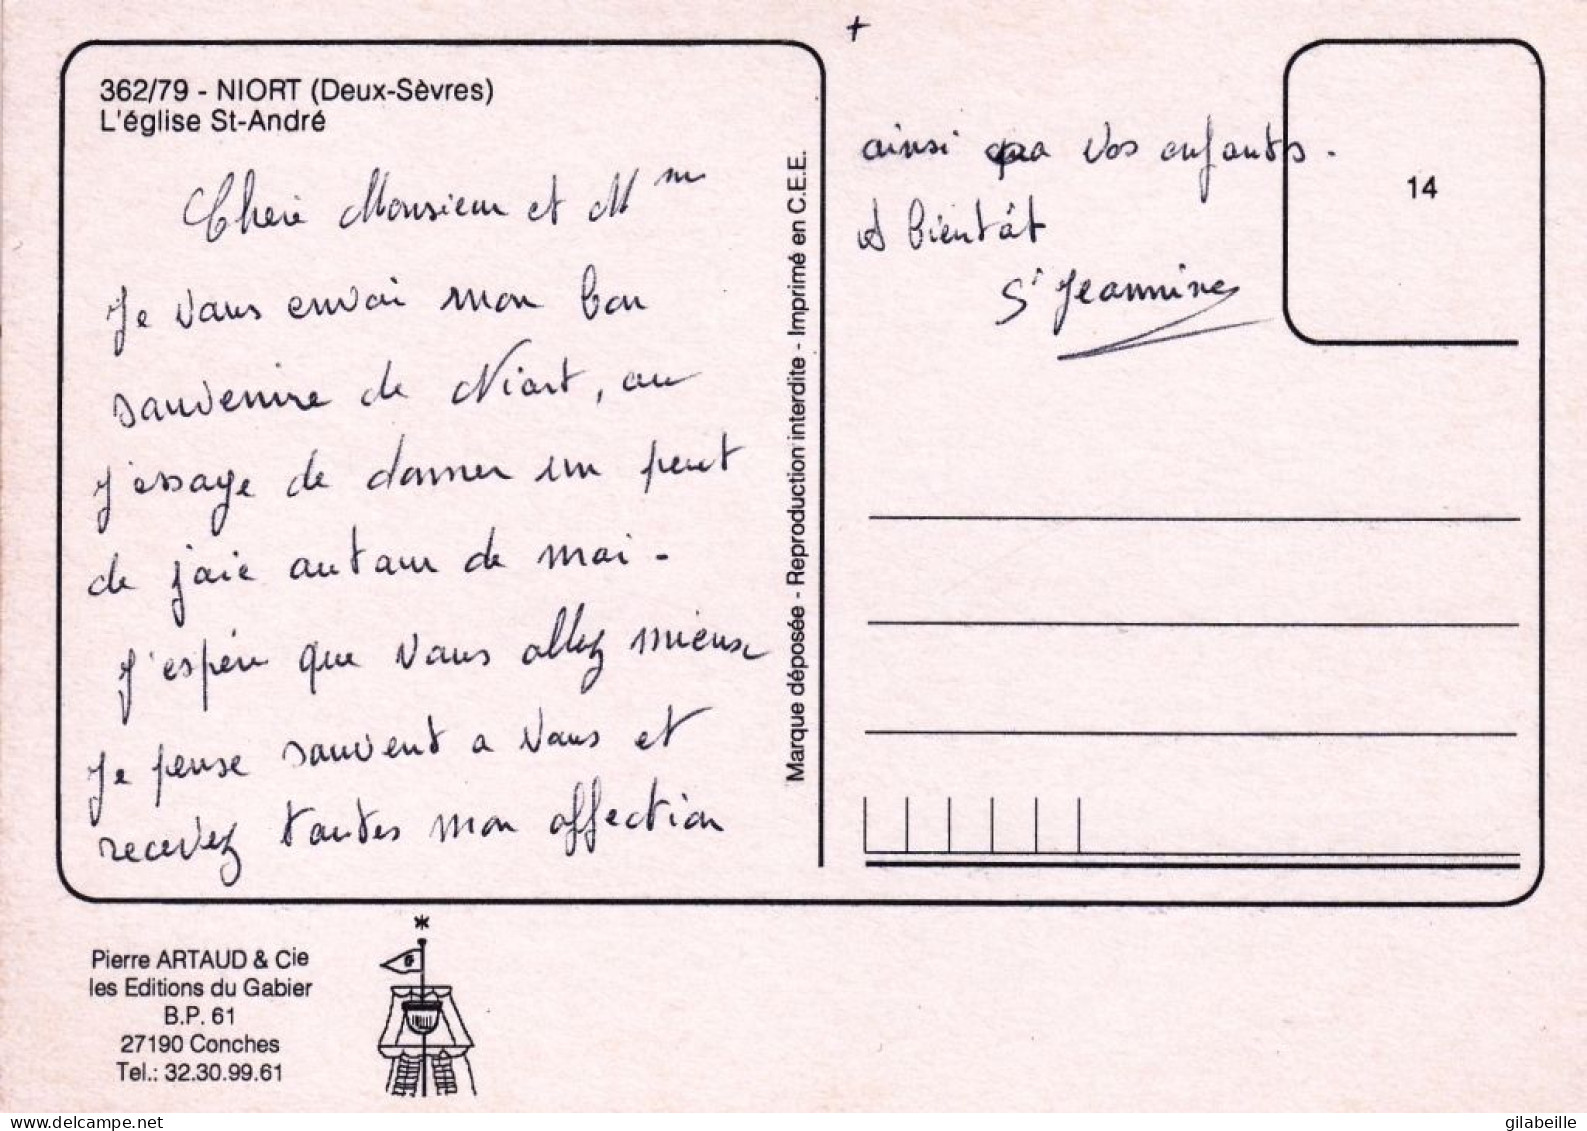 362/79 - NIORT (Deux-Sèvres)
L'église St-André
Cheri Monsieur et Mm
Je vous envoi mon bon
souvenire de Niort, ou
j'essaye de donner un peut
de joie autour de moi -
J'espère que vous allez mieux
Je pense souvent a vous et
recevez toutes mon affection
Marque déposée - Reproduction interdite - Imprimé en C.E.E.
+
ainsi qua vos enfants.
A bientôt
Sr Jeannine
14
Pierre ARTAUD & Cie
les Editions du Gabier
B.P. 61
27190 Conches
Tel.: 32.30.99.61
*
G
gilabeille